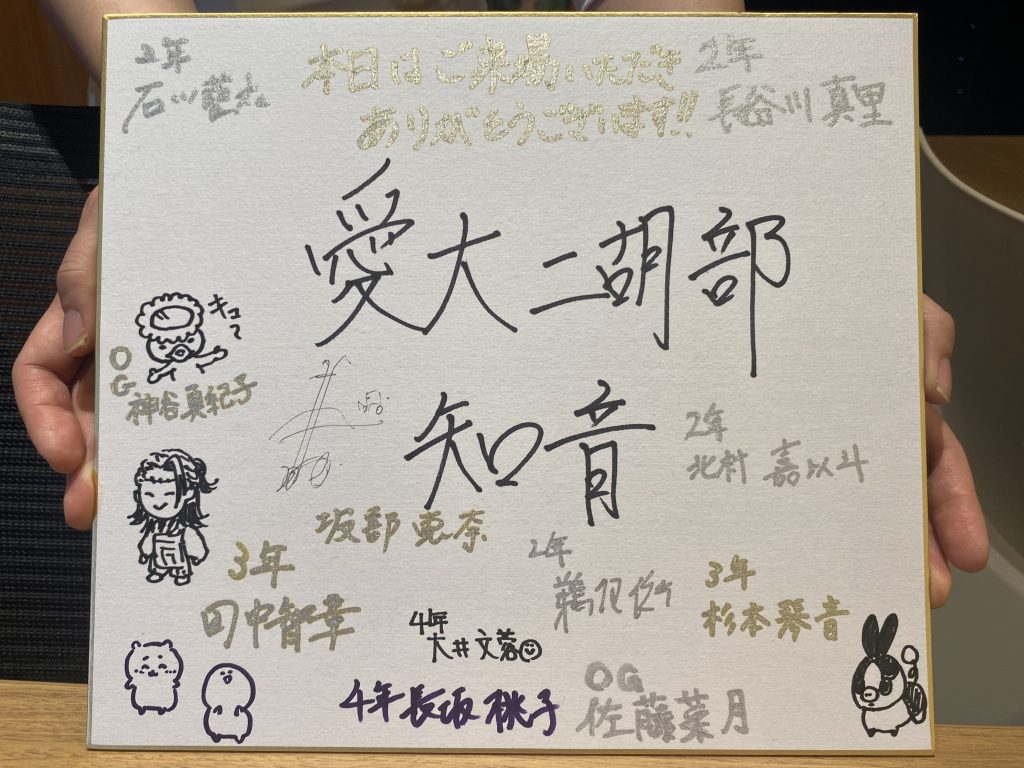 2年
石川
本日はご来場いただき
ありがとうございます!!
2年
長谷川 真里
愛大二胡部
知音
キュー
OG
神谷真紀子
2年
北村 嘉以斗
坂部 恵奈
3年
田中智章
2年
3年
杉本琴音
4年
大井文蓉
4年長坂 桃子
OG
佐藤菜月